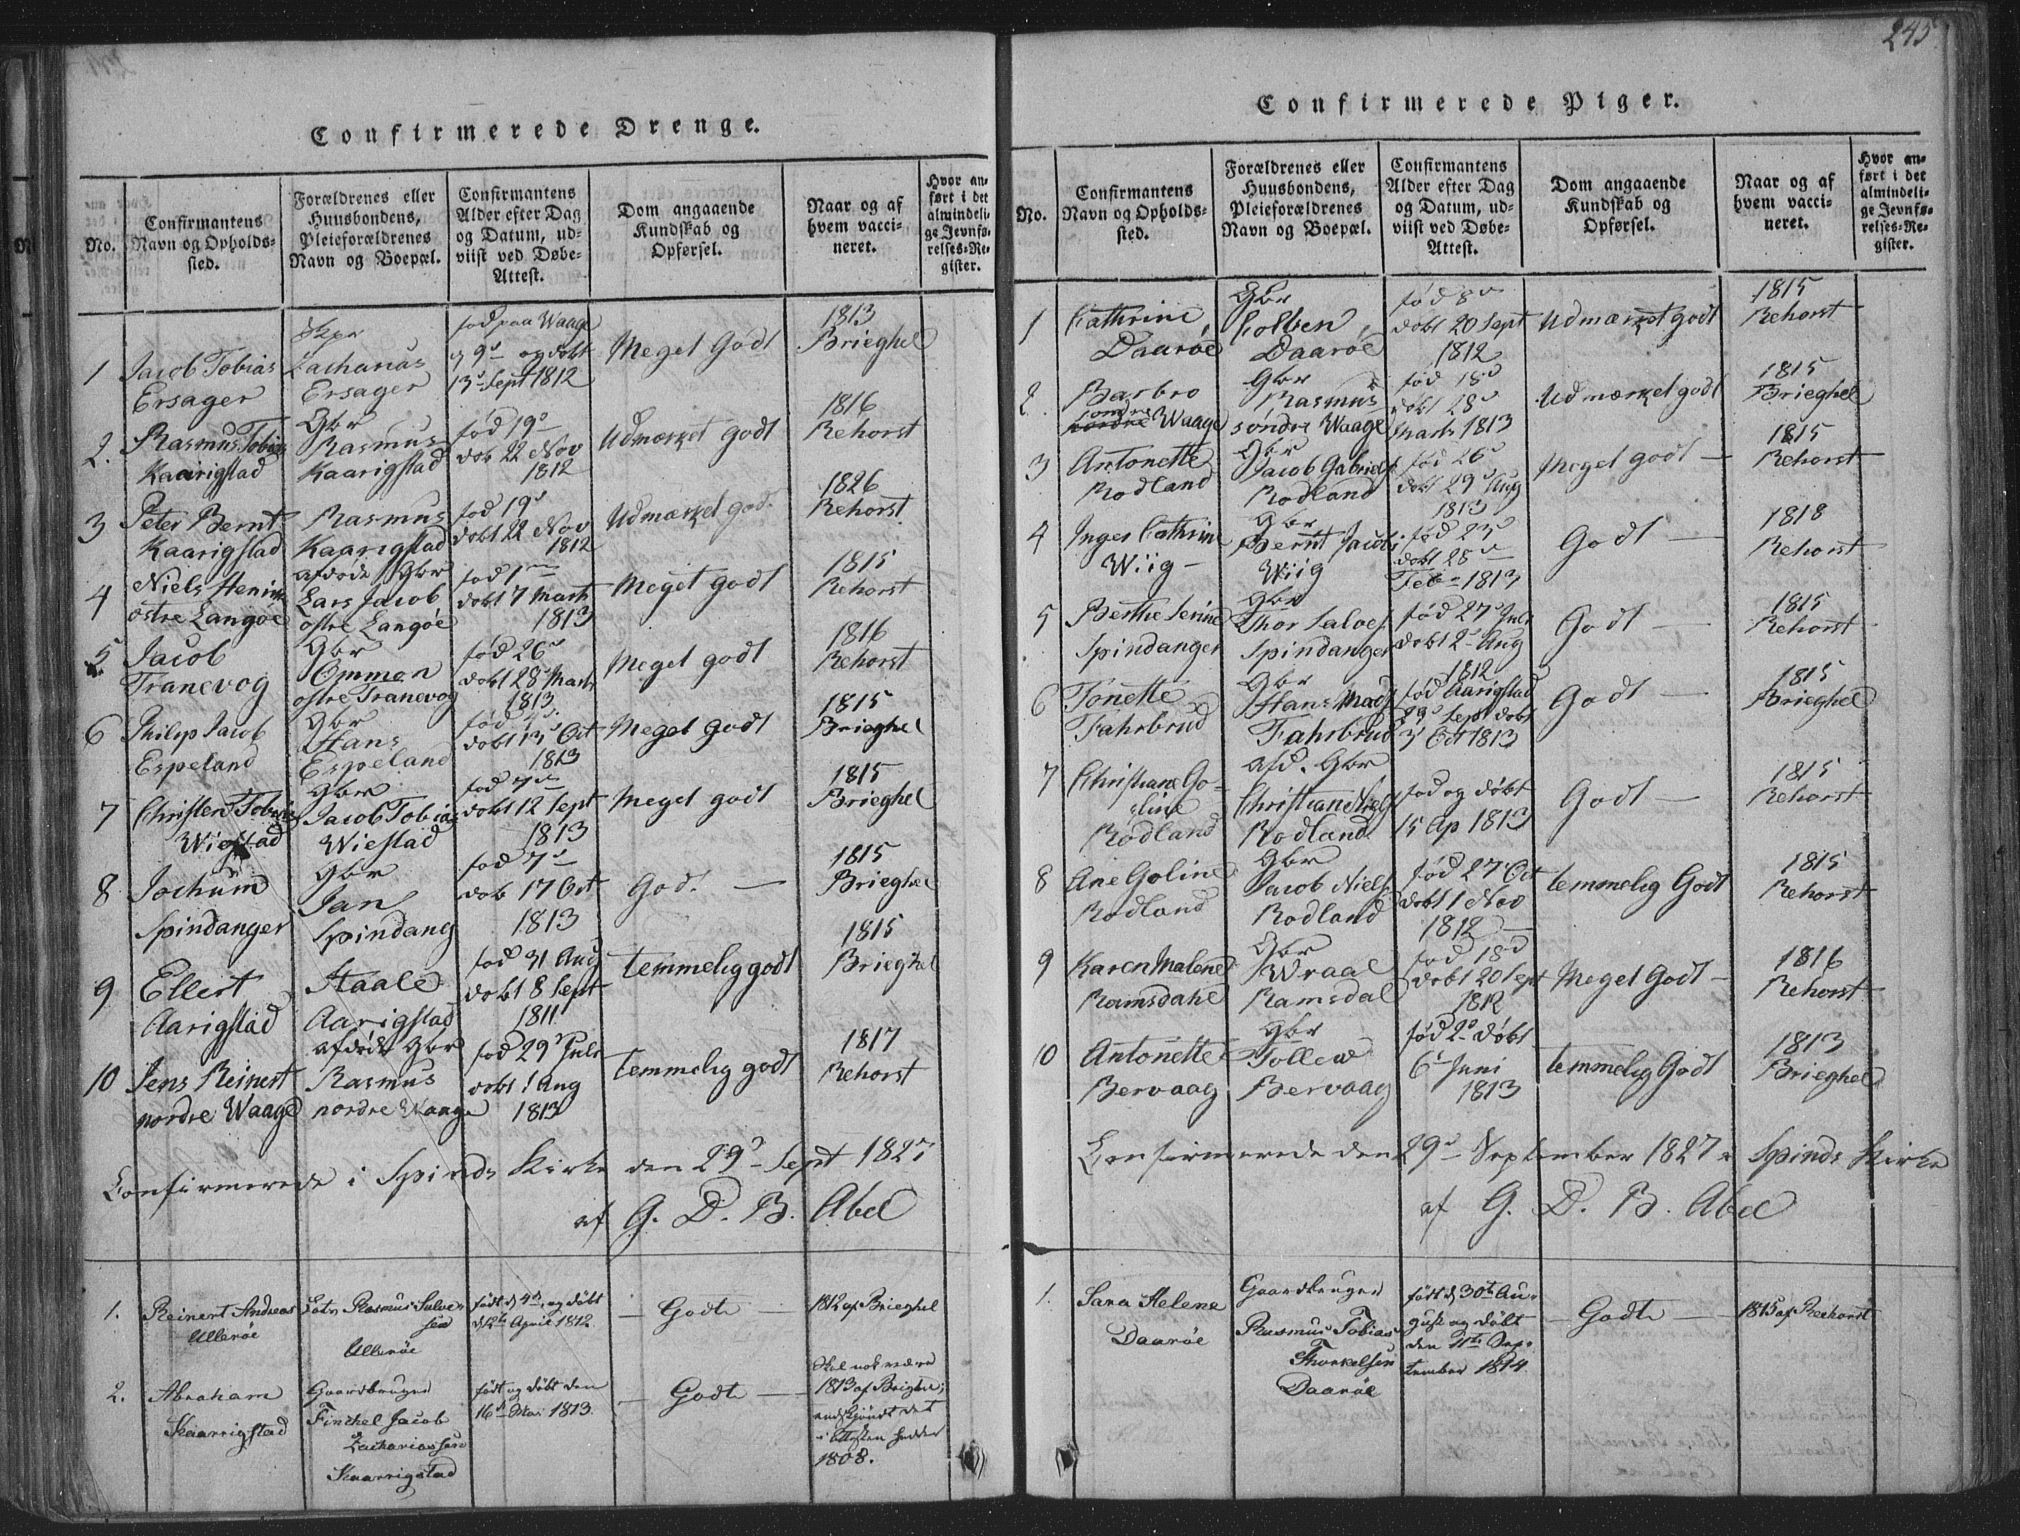 245
Confirmerede Drenge.
No.
Confirmantens
Navn og Opholds-
sted.
Forældrenes eller
Huusbondens,
Pleieforældrenes
Navn og Boepæl.
Confirmantens
Alder efter Dag
og Datum, ud-
viist ved Døbe-
Attest.
Dom angaaende
Kundskab og
Opførsel.
Naar og af
hvem vacci-
neret.
Hvor an-
ført i det
almindeli-
ge Jevnfø-
relses-Re-
gister.
1
Jacob Tobias
Ersager
Zacharias
Ersager
fød paa Waage
d 9d og døbt
13d Sept 1812
Meget Godt
1813
Brieghel
2.
Rasmus Tobias
Kaarigstad
Gbr
Rasmus
Kaarigstad
fød 19d
døb 22 Nov
1812
Udmærket godt
1816
Rehorst
3
Peter Bernt
Kaarigstad
Rasmus
Kaarigstad
fød 19d
døbt 22 Nov
1812
Udmærket god.
1826
Rehorst
4
Niels Henrik
østre Langøe
afdøde Gbr
Lars Jacob
østre Langøe
fød 1
døbt 7 Marts
1813
Meget godt
1815
Rehorst
5
Jacob
Tranevog
Gbr
Ommon
østre Tranevog
fød 26d
døbt 28d Marts
1813
Meget godt
1816
Rehorst
6
Philip Jacob
Espeland
Gbr
Hans
Espeland
fød
døbt 13d Oct
1813
Meget godt
1815
Brieghel
7
Christen Tobias
Wiestad
Gbr
Jacob Tobias
Wiestad
fød 7d
døbt 12 Sept
1813
Meget godt
1815
Brieghel
8
Jochum
Spindanger
Gbr
Jan
Spindang
fød 7d
døb 17 Oct
1813
God. —
1815
Brieghel
9
Ellert
Aarigstad
Staale
Aarigstad
fød 31 Aug
døbt 8 Sept
1811
temmelig godt
1815
Brieghel
10
Jens Reinert
nordre Waage
afdøde Gbr
Rasmus
nordre Waage
fød 29d Juli
døbt 1 Aug
1813
temmelig godt
1817
Rehorst
Confirmerede i Spinds Kirke den 29d Sept 1827
af G. D. B. Abel
1.
Reinert Andreas
Ullerøe
Lots Rasmus Salve-
sen
Ullerøe
født d 4d, og døbt
d 12te April 1812.
— Godt —
1812 af Brieghel
2.
Abraham
Kaarrigstad
Gaardbruger
Finchel Jacob
Zachariassen
Kaarrigstad
født og døbt den
16d Mai 1813.
— Godt —
Skal nok være
1813 af Brighel,
endskjøndt det
i Attesten hedder
1808.
Confirmerede Piger.
No.
Confirmantens
Navn og Opholds-
sted.
Forældrenes eller
Huusbondens,
Pleieforældrenes
Navn og Boepæl.
Confirmantens
Alder efter Dag
og Datum, ud-
viist ved Døbe-
Attest.
Dom angaaende
Kundskab og
Opførsel.
Naar og af
hvem vacci-
neret.
Hvor an-
ført i det
almindeli-
ge Jevnfø-
relses-Re-
gister.
1
Cathrine
Daarøe
Gbr
Colben
Daarøe
fød 8d
døbt 20 Sept
1812
Udmærket godt
1815
Rehorst
2.
Barbro
søndre
nordre Waage
Gbr
Rasmus
søndre Waage
fød 18d
døbt 28d
Marts 1813
Udmærket godt
1815
Brieghel
3
Antonette
Rodland
Gbr
Jacob Gabriels
Rodland
fød 26d
døbt 29d Aug
1813
Meget godt —
1815
Rehorst
4
Inger Cathrine
Wiig —
Gbr
Bernt Jacobs
Wiig
fød 23d
døbt 28d
Feb 1813
Godt —
1818
Rehorst
5
Berthe Serine
Spindanger
Gbr
Thor Salves
Spindanger
fød 27d Juli
døbt 2d Aug
1812
Godt —
1815
Rehorst
6
Tonette
Fahrbrud
Gbr
Hans Mads
Fahrbrud
fød Aarigstad
29d Sept døbt
3d Oct 1813
Godt —
1815
Brieghel
7
Christiane Go-
line
Rødland
afd. Gbr
Christian Niels
Rødland
fød og døbt
15 Ap 1813
Godt —
1815
Rehorst
8
Ane Goline
Rodland
Gbr
Jacob Niels
Rodland
fød 27 Oct
døbt 1 Nov
1812 —
temmelig Godt
1815
Rehorst
9
Karen Malene
Ramsdahl
Gbr
Wraal
Ramsdal
fød 18d
døbt 20 Sept
1812
Meget Godt —
1816
Rehorst
10
Antonette
Bervaag
Gbr
Tollev
Bervaag
fød 2d døbt
6d Juni
1813
temmelig Godt
1813
Brieghel
Confirmerede den 29d September 1827 i Spinds Kirke
af G. D. B. Abel
1.
Sara Helene
Daarøe
Gaardbruger
Rasmus Tobias
Thorkelsen
Daarøe
født d 30te Au-
gust og døbt
den 11te Sep-
tember 1814.
— Godt —
1815 af Reehorst